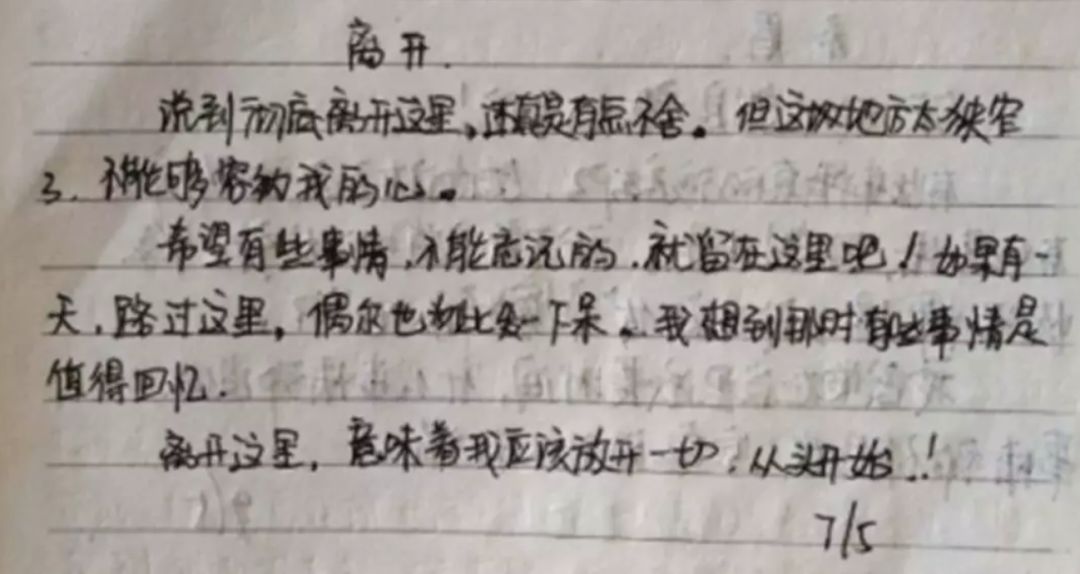 离开.
说到彻底离开这里,还真是有点不舍。但这个地方太狭窄
了.不能够容纳我的心。
希望有些事情,不能忘记的,就留在这里吧!如果有一
天,路过这里,偶尔也会一下来。我想到那时有些事情是
值得回忆.
离开这里,意味着我应该放开一切,从头开始..!
7/5